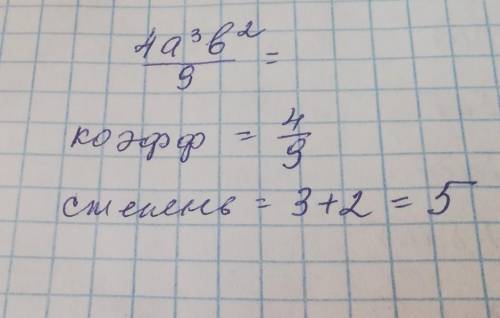 4a³b²/9 =
коэфф = 4/9
степень = 3+2 = 5